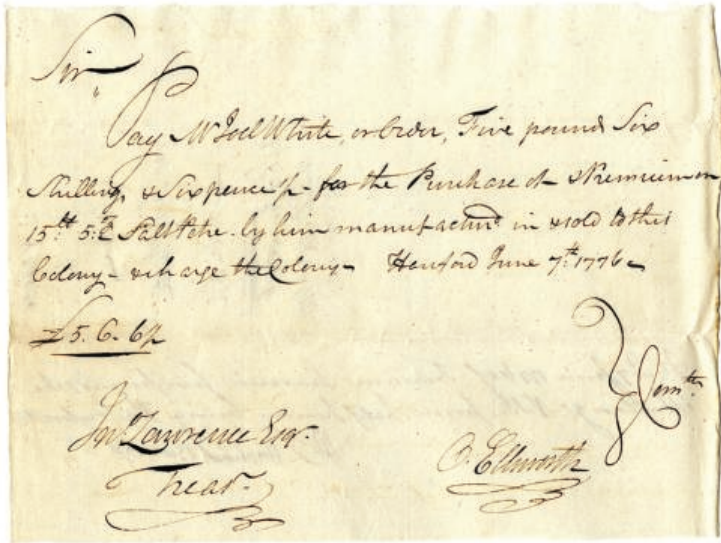 Sir,
Pay Mr Joel White, or Order, Five pound Six
Shilling, & Sixpence for the Purchase of & Premium on
15lb 5:oz Salt Petre by him manufactured in & sold to this
Colony - & charge the Colony - Hartford June 7th 1776
£5. 6. 6
Jno Lawrence Esqr.
Treasr.
O. Ellsworth
Comtte